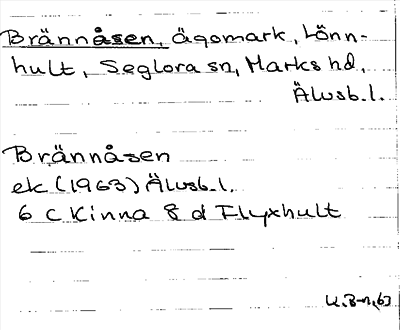 Brännåsen, ägomark, Lönn-
hult, Seglora sn, Marks hd,
Älvsb. l.
Brännåsen
ek (1963) Älvsb. l.
6 C Kinna 8 d Flyxhult